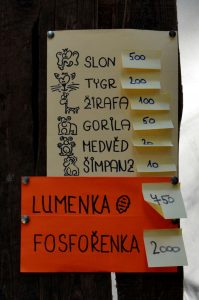 SLON 500
TYGR 200
ŽIRAFA 100
GORILA 50
MEDVĚD 20
ŠIMPANZ 10
LUMENKA 450
FOSFOŘENKA 2000